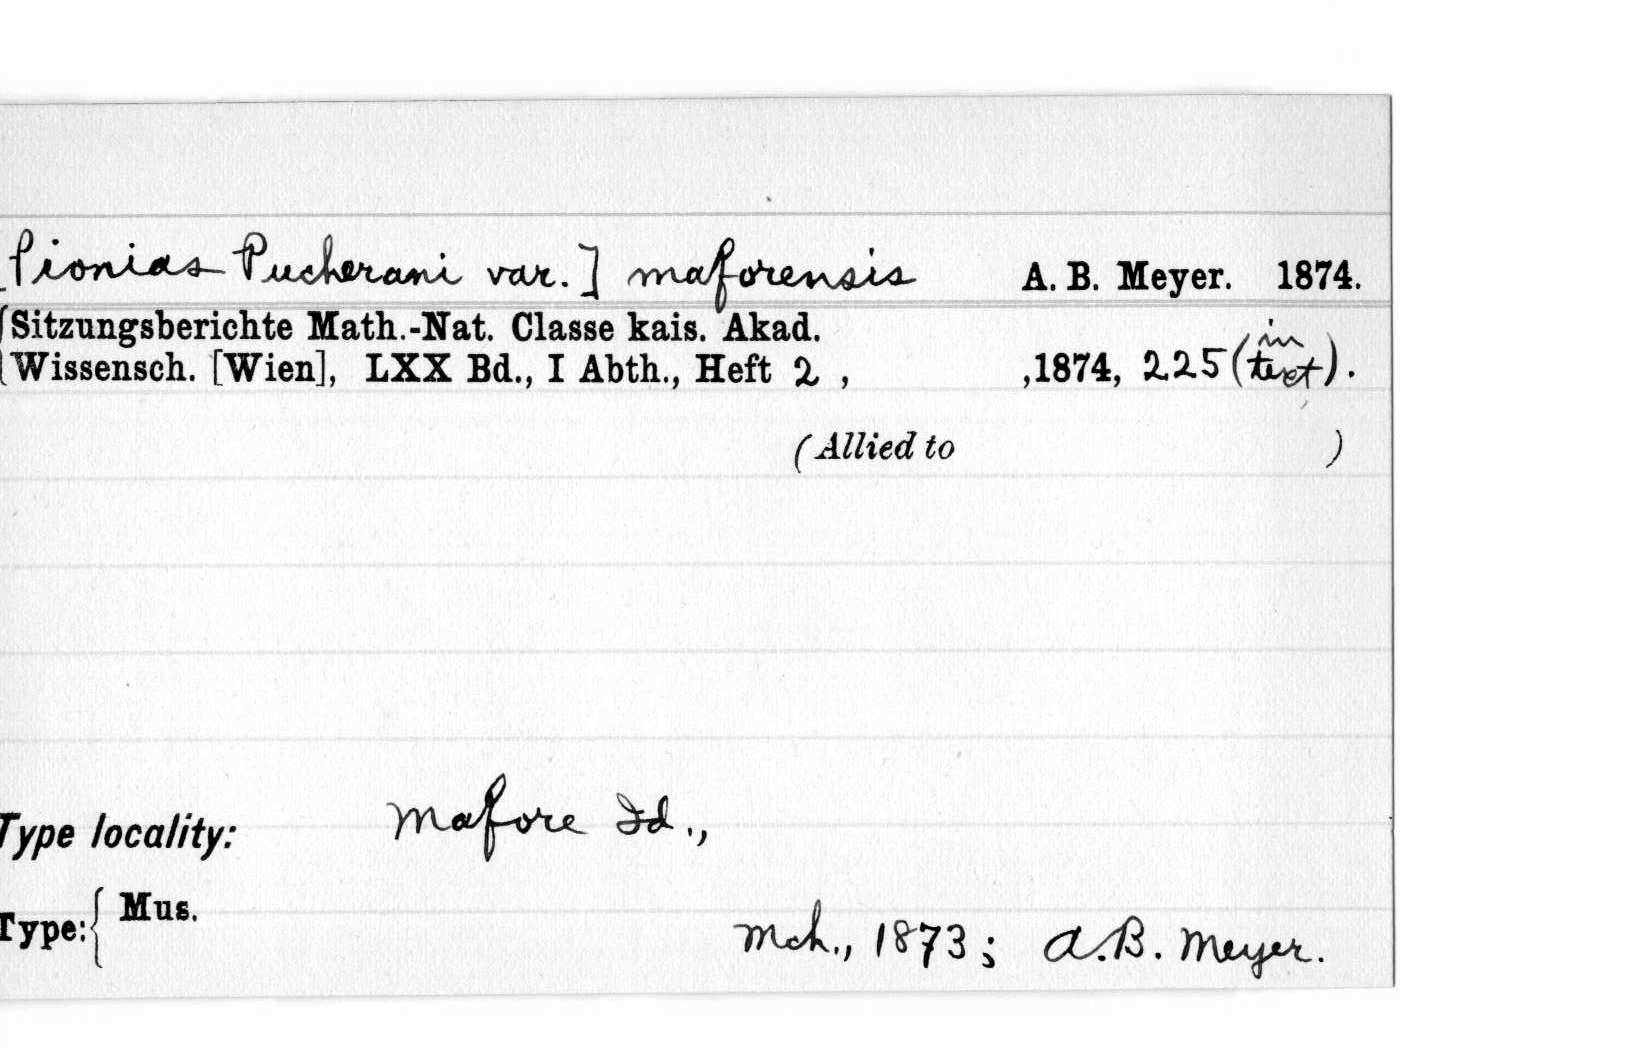 [Pionias Pucherani var.] maforensis A. B. Meyer. 1874.
Sitzungsberichte Math.-Nat. Classe kais. Akad.
Wissensch. [Wien], LXX Bd., I Abth., Heft 2 , ,1874, 225 (in text).
(Allied to )
Type locality: Mafore Id.,
Type: { Mus.
Mch., 1873; A.B. Meyer.